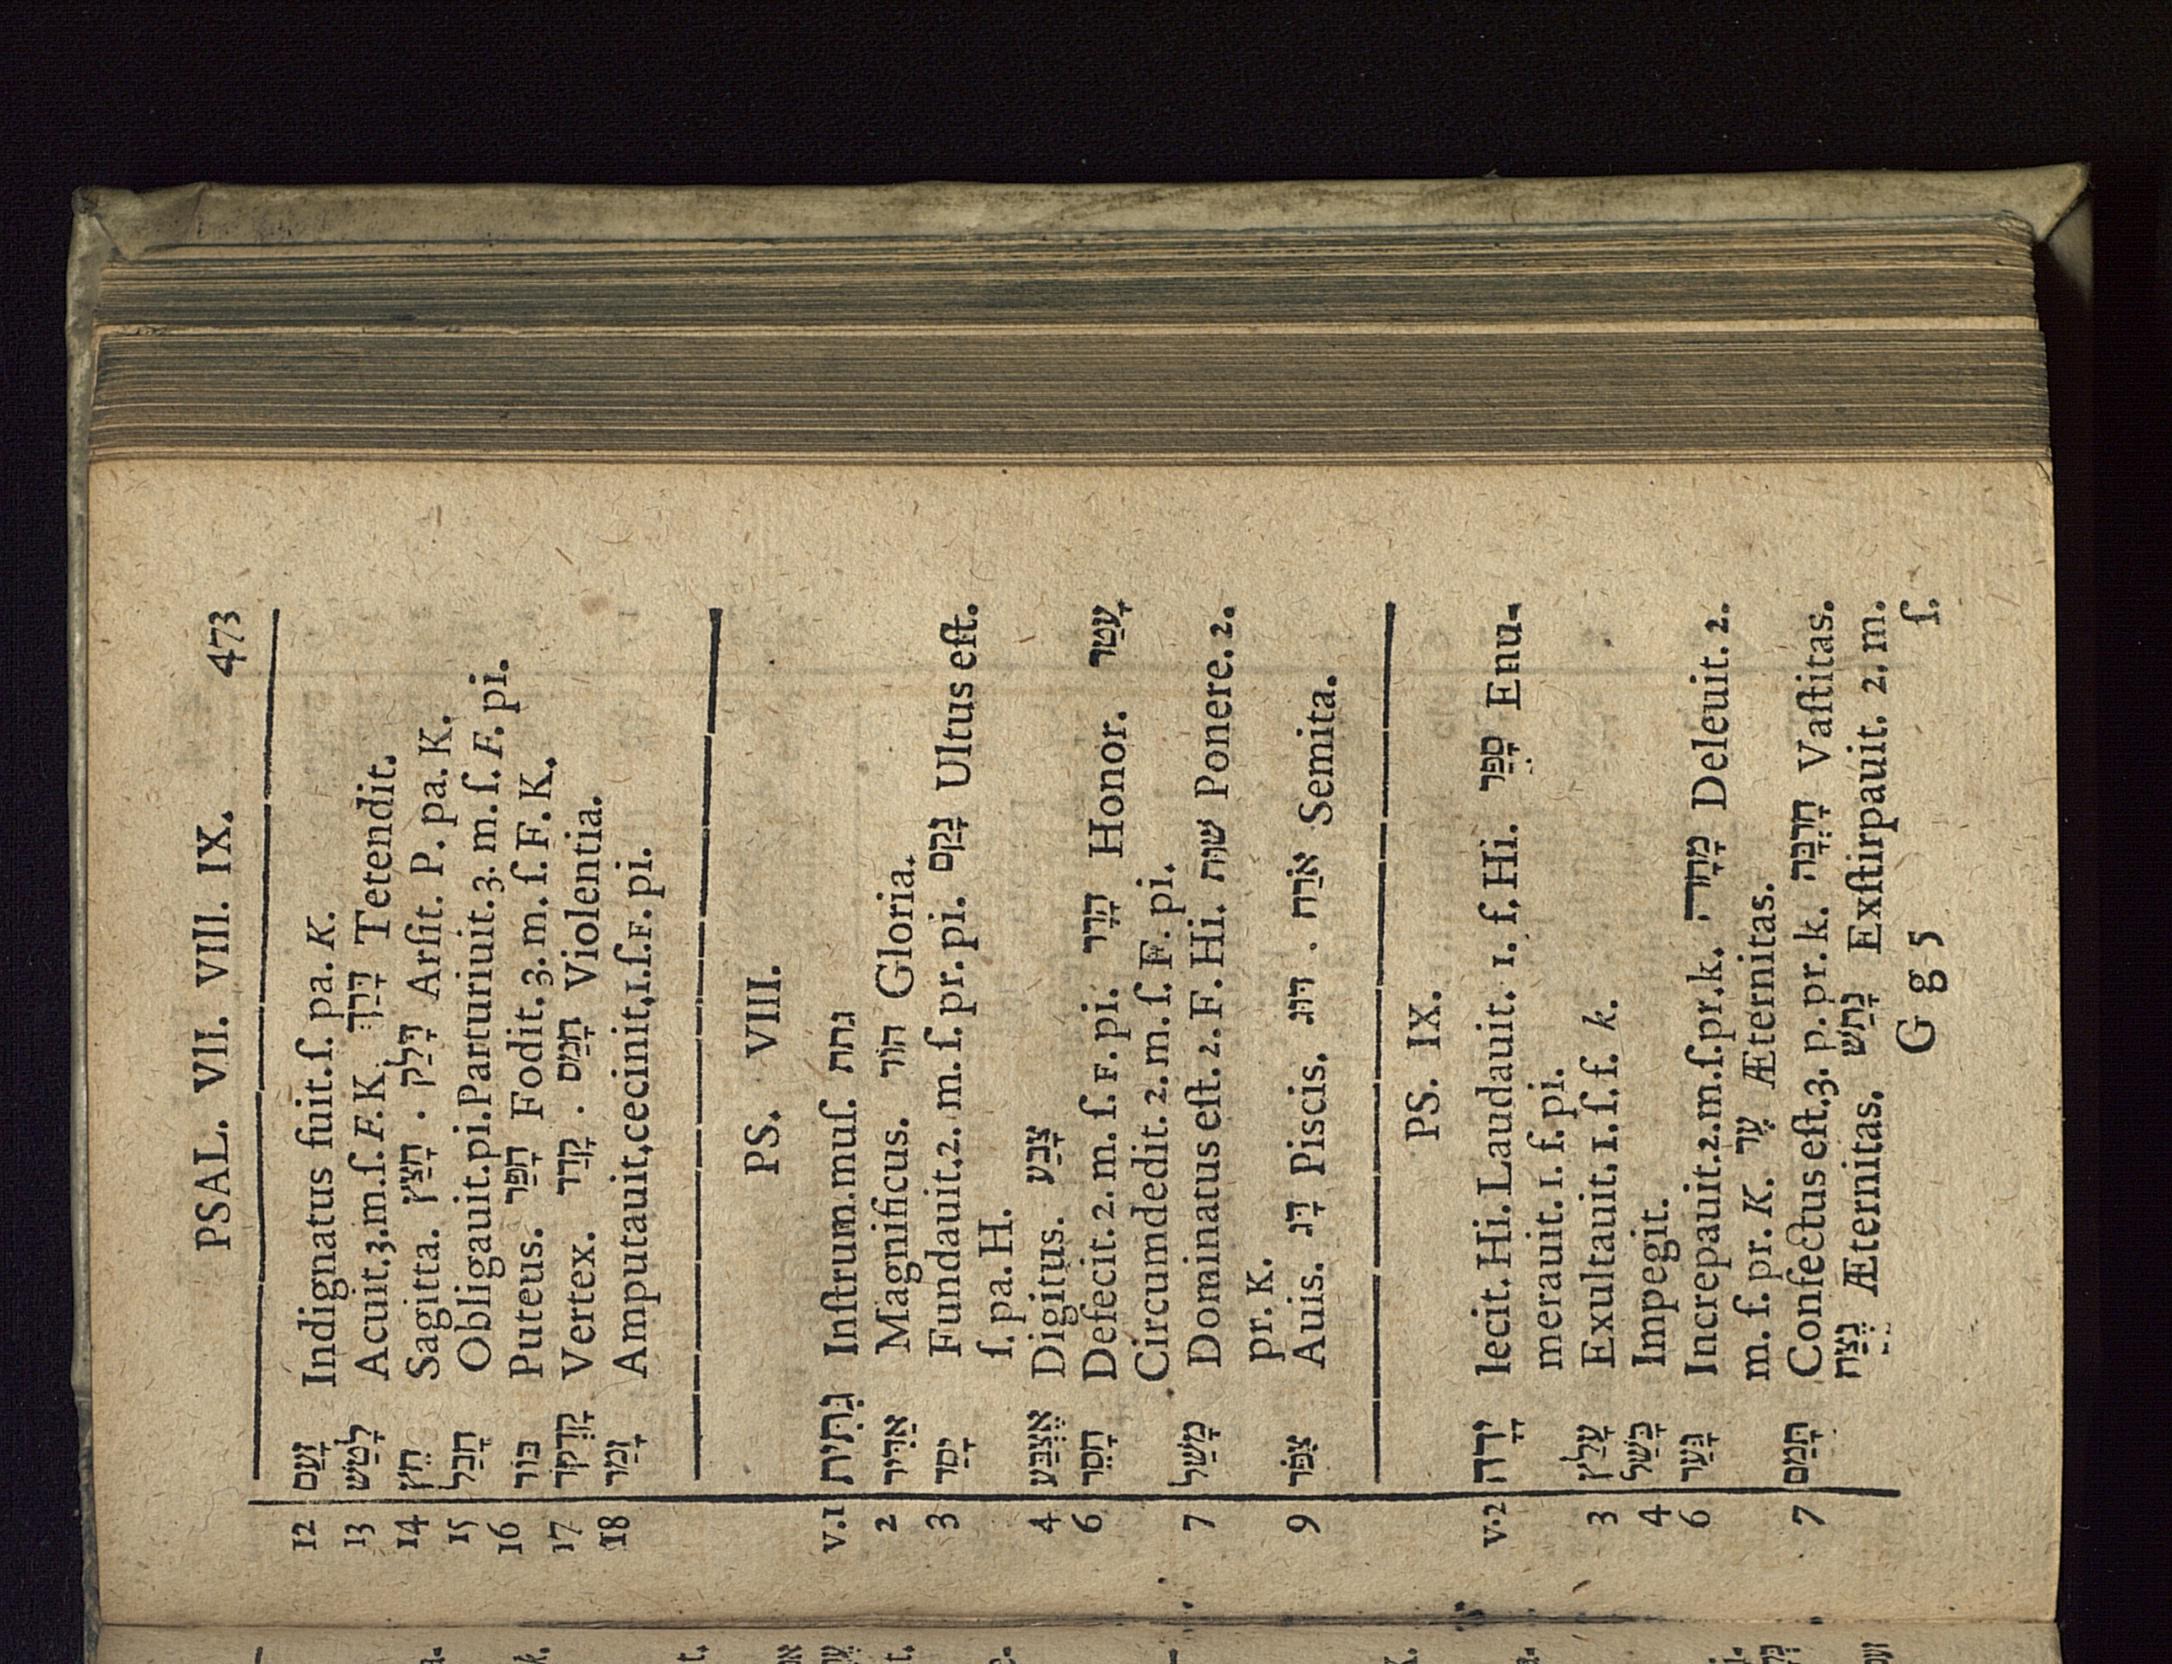 PSAL. VII. VIII. IX. 473
12 זָעַם Indignatus fuit.ſ. pa. K.
13 לָטַשׁ Acuit.3.m.ſ.F.K. דָּרַךְ Tetendit.
14 חֵץ Sagitta. חָצַץ . דָּלַק Arſit. P. pa. K.
15 חָבַל Obligauit.pi.Parturiuit.3.m.ſ.F. pi.
16 בּוֹר Puteus. חָפַר Fodit.3.m.ſ.F.K.
17 קָדְקֹד Vertex. קָדַד . חָמַס Violentia.
18 זָמַר Amputauit,cecinit,1.ſ.F. pi.
PS. VIII.
v.1 גִּתִּית Inſtrum.muſ. גתת
2 אַדִּיר Magnificus. הוֹד Gloria.
3 יָסַד Fundauit,2.m.ſ.pr.pi. נָקַם Ultus eſt.
ſ.pa.H.
4 אֶצְבַּע Digitus. צָבַע
6 חָסֵר Defecit.2.m.ſ.F.pi. הָדָר Honor. עָטַר
Circumdedit.2.m.ſ.F.pi.
7 מָשַׁל Dominatus eſt.2.F.Hi. שׁוּת Ponere.2.
pr.K.
9 צִפֹּר Auis. דָּג Piscis. דּוּג . אֹרַח Semita.
PS. IX.
v.2 יָדָה Iecit.Hi.Laudauit. 1.ſ.Hi. סָפַר Enu-
merauit.1.ſ.pi.
3 עָלַץ Exultauit.1.ſ.f. k.
4 כָּשַׁל Impegit.
6 גָּעַר Increpauit.2.m.ſ.pr.k. מָחָה Deleuit.2.
m.ſ.pr.K. עַד Æternitas.
7 תָּמַם Confectus eſt.3.p.pr.k. חָרְבָּה Vaſtitas.
נֶצַח Æternitas. נָתַשׁ Exſtirpauit.2.m.
G g 5 ſ.